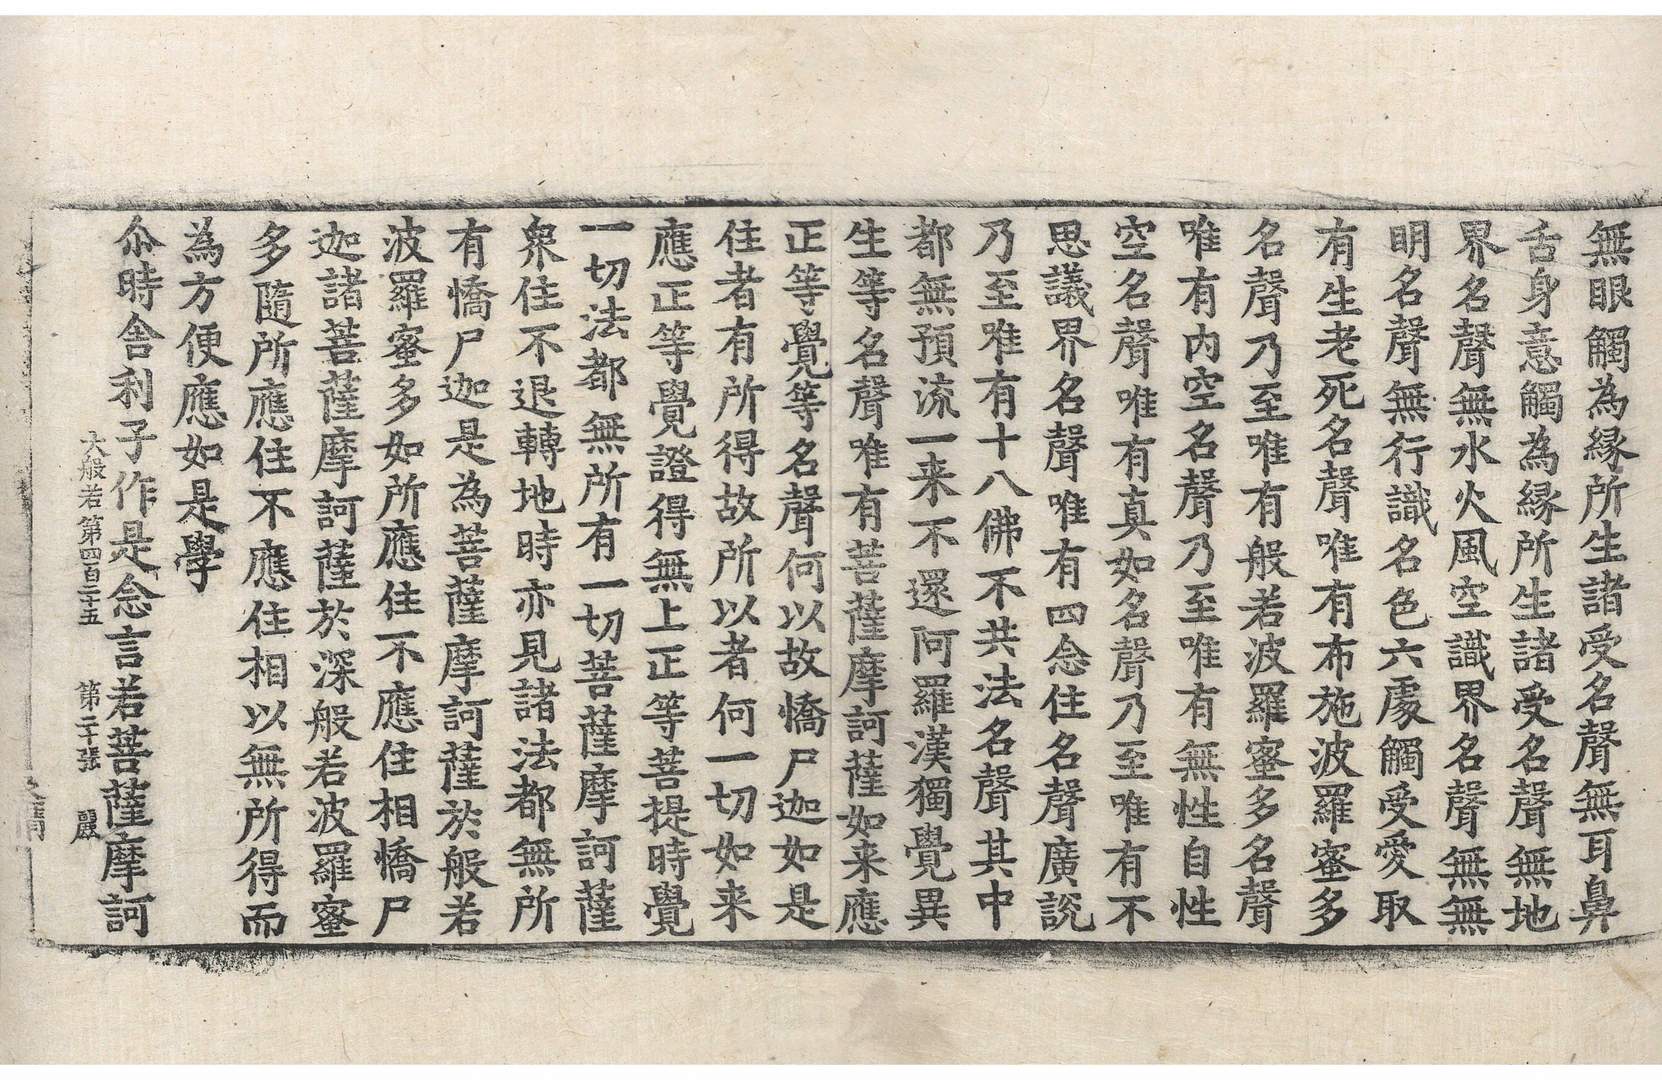 無眼觸為縁所生諸受名聲無耳鼻
舌身意觸為縁所生諸受名聲無地
界名聲無水火風空識界名聲無無
明名聲無行識名色六處觸受愛取
有生老死名聲唯有布施波羅蜜多
名聲乃至唯有般若波羅蜜多名聲
唯有内空名聲乃至唯有無性自性
空名聲唯有真如名聲乃至唯有不
思議界名聲唯有四念住名聲廣說
乃至唯有十八佛不共法名聲其中
都無預流一来不還阿羅漢獨覺異
生等名聲唯有菩薩摩訶薩如来應
正等覺等名聲何以故憍尸迦如是
住者有所得故所以者何一切如来
應正等覺證得無上正等菩提時覺
一切法都無所有一切菩薩摩訶薩
衆住不退轉地時亦見諸法都無所
有憍尸迦是為菩薩摩訶薩於般若
波羅蜜多如所應住不應住相憍尸
迦諸菩薩摩訶薩於深般若波羅蜜
多隨所應住不應住相以無所得而
為方便應如是學
尒時舎利子作是念言若菩薩摩訶
大般若第四百二十五 第二十張 麗